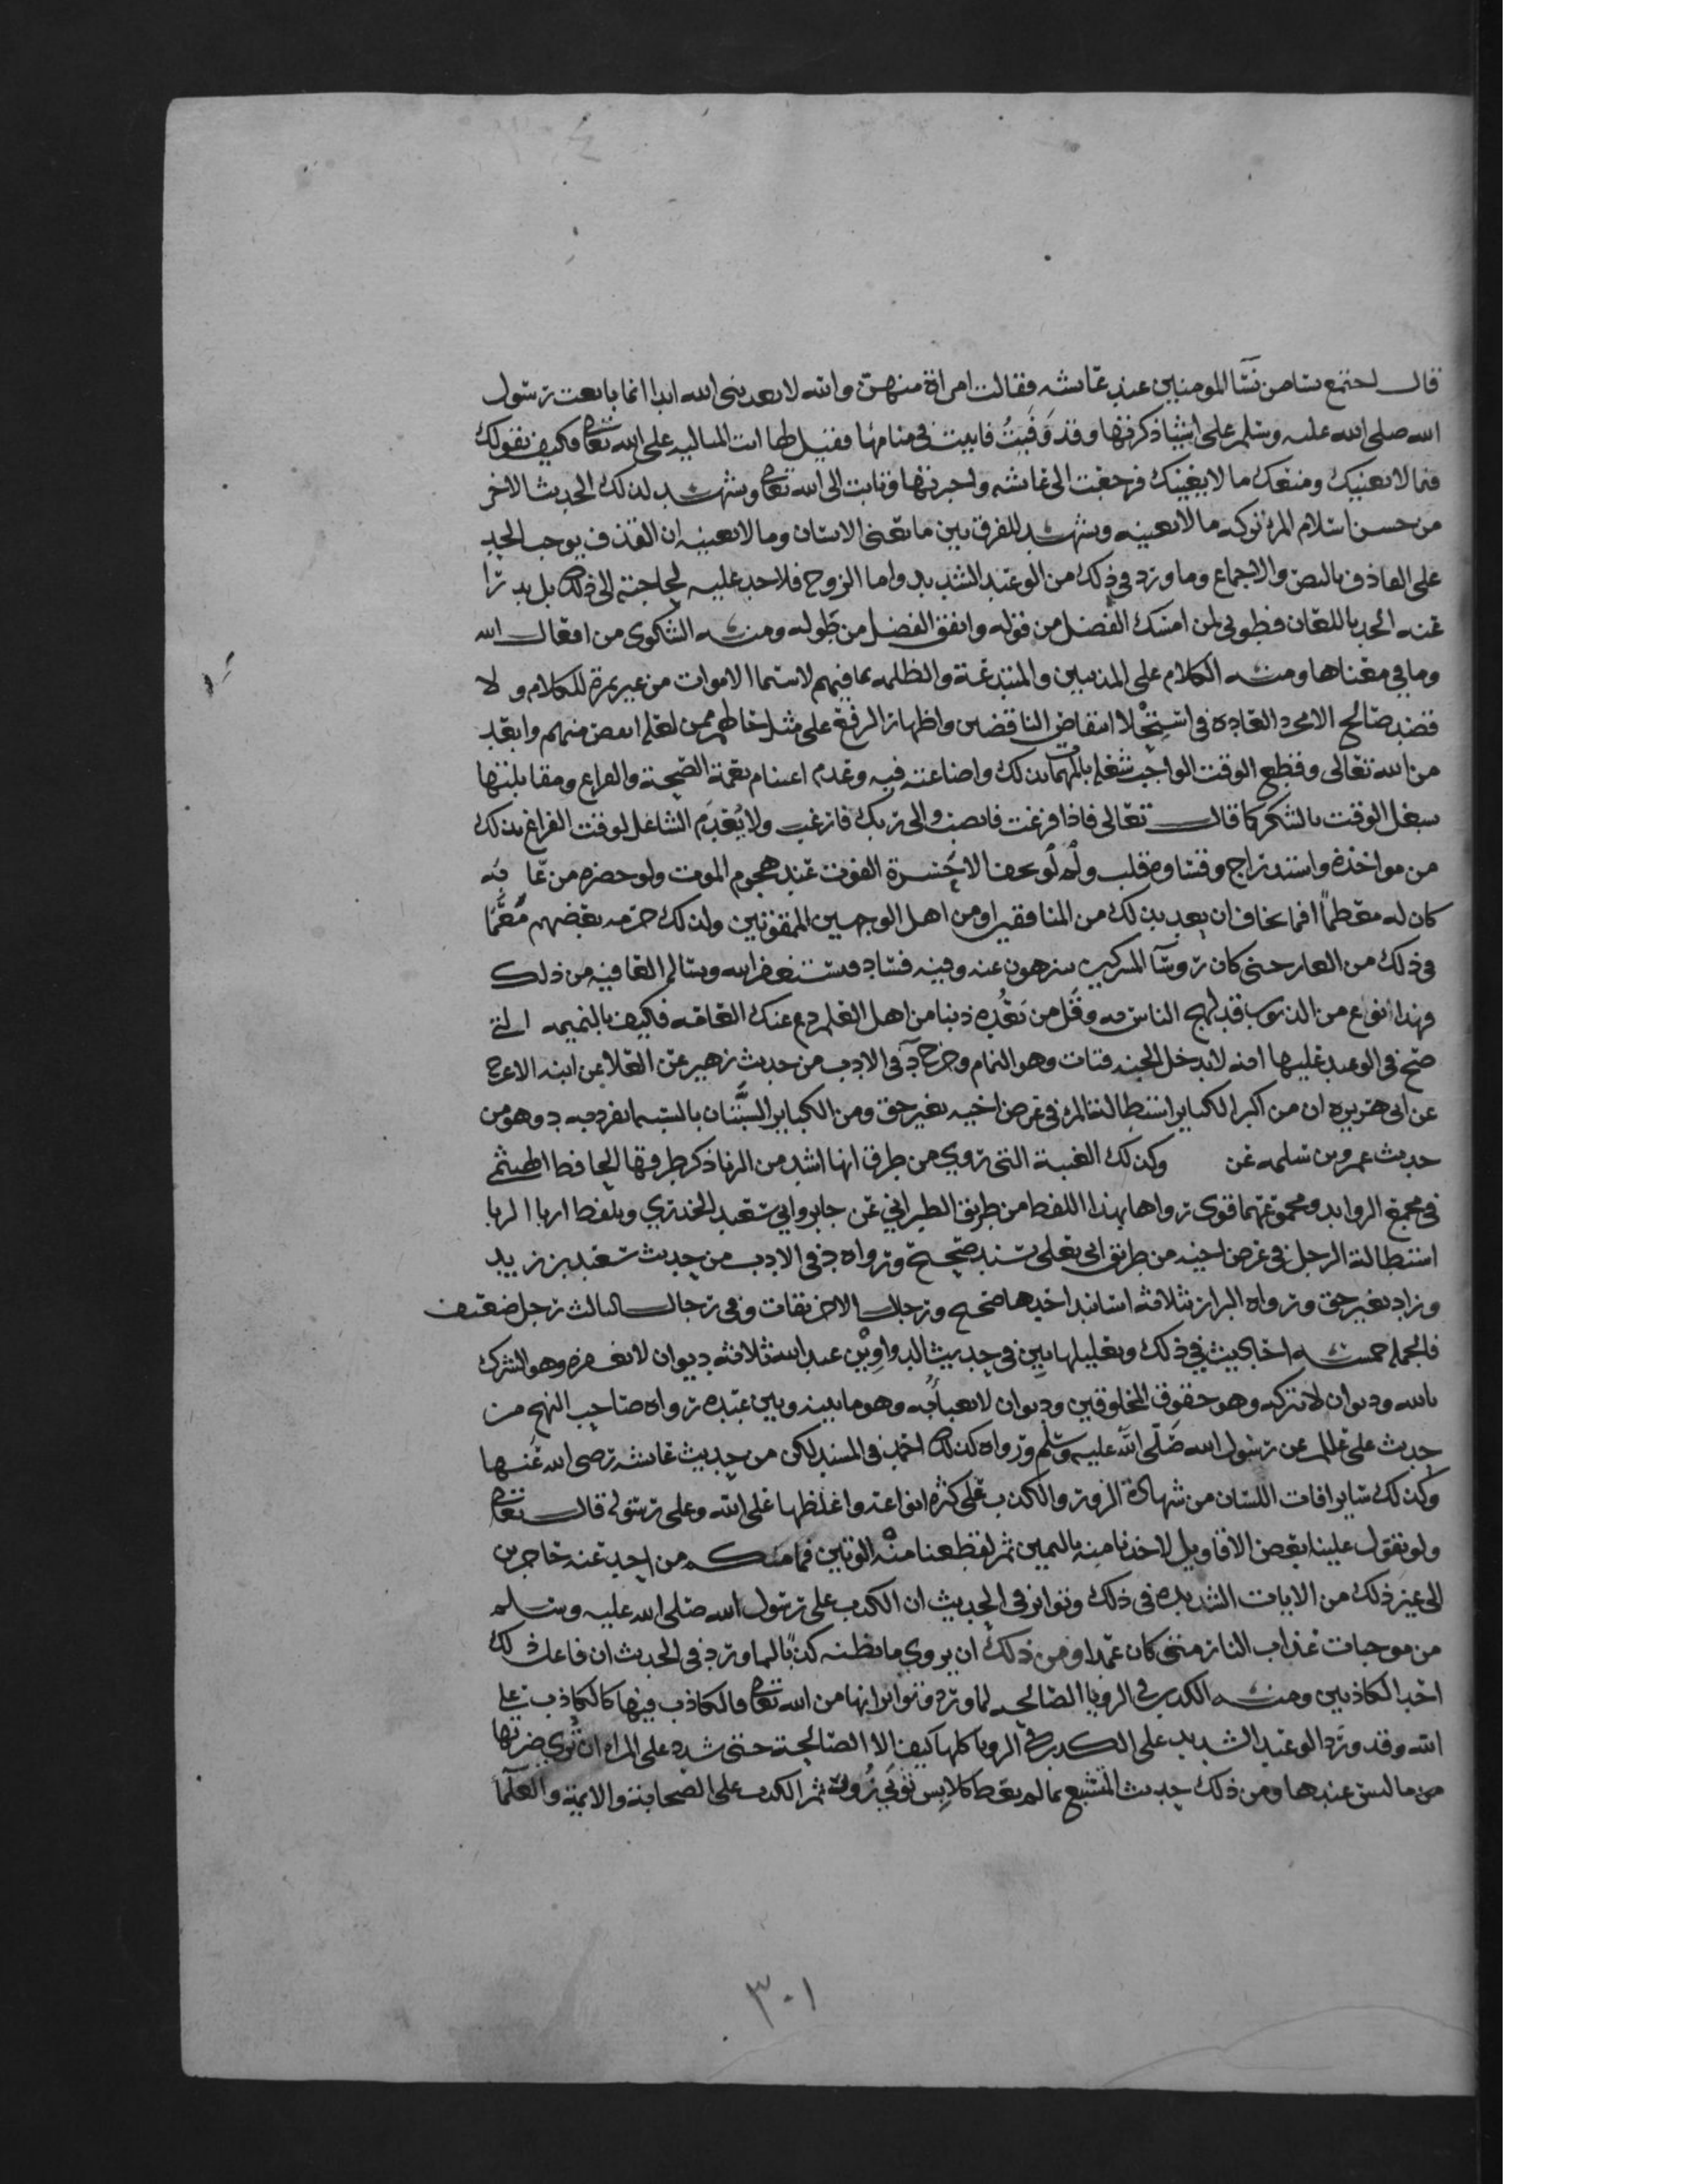 قال اجتمع نسا من نسآ المومنين عند عائشه فقالت امراة منهن والله لا يعذبني الله ابدا انما بايعت رسول
الله صلى الله عليه وسلم على اشيا ذكرتها وقد وَفَيتُ فاتيت في منامها فقيل لها انت المتاليه على الله تعالى فكيف بقولك
فيما لا يعنيك ومنعك ما لا يغنيك فرجعت الى عائشه واخبرتها وتابت الى الله تعالى ويشهد لذلك الحديث الاخر
من حسن اسلام المرء تركه ما لا يعنيه ويشهد للفرق بين ما يعني الانسان وما لا يعنيه ان القذف يوجب الحد
على القاذف بالنص والاجماع وما ورد في ذلك من الوعيد الشديد واما الزوج فلا حد عليه لحاجته الى ذلك بل يدرا
عنه الحد باللعان فطوبى لمن امسك الفضل من قوله وانفق الفضل من طوله ومنه الشكوى من افعال الله
وما في معناها ومنه الكلام على المذنبين والمبتدعة والظلمه بما فيهم لا سيما الاموات من غير ثمرة للكلام ولا
قصد صالح الا مجرد العادة في استحلا انتقاص الناقصين واظهار الترفع على مثل حالهم ممن لعله ابغض منهم وابعد
من الله تعالى وقطع الوقت الواجب شغله بالمهمات بذلك واضاعته فيه وعدم اغتنام نعمة الصحة والفراغ ومقابلتها
بشغل الوقت بالشكر كما قال تعالى فاذا فرغت فانصب والى ربك فارغب ولا يُعْدِم الشاغل لوقت الفراغ بذلك
من مواخذة واستدراج وقساوة قلب ولو لم يخف الا حسرة الفوت عند هجوم الموت ولو حضره من عابه
كان له معظمًا افما يخاف ان يعد بذلك من المنافقين او من اهل الوجهين الممقوتين ولذلك حرمه بعضهم مُعمِّمًا
في ذلك من العار حتى كان روسآ المشركين يتنزهون عنه وفيه فساد فنستغفر الله ونساله العافيه من ذلك
فهذا انواع من الذنوب قد لهج الناس به وقل من يَعُده ذنبا من اهل العلم دع عنك العامه فكيف بالنميمه التي
صح في الوعيد عليها انه لا يدخل الجنه قتات وهو النمام وخرج د في الادب من حديث زهير عن العلا عن ابيه الاعرج
عن ابي هريره ان من اكبر الكباير استطالة المرء في عرض اخيه بغير حق ومن الكباير السَّبَّتان بالسبه انفرد به د وهو من
حديث عمرو بن سلمه عن وكذلك الغيبة التي روي من طرق انها اشد من الزنا ذكر طرقها الحافظ الهيثمي
في مجمع الزوايد ومجموعهما قوى رواها بهذا اللفظ من طريق الطبراني عن جابر وابي سعيد الخدري وبلفظ اربا الربا
استطالة الرجل في عرض اخيه من طريق ابي يعلى بسند صحيح ورواه د في الادب من حديث سعيد بن زيد
وزاد بغير حق ورواه البزار بثلاثه اسانيد احدها صحيح ورجال الاخر ثقات وفي رجال الثالث رجل ضعيف
فالجمله خمسه احاديث في ذلك وتعليلها بين في حديث الدواوين عند الله ثلاثه ديوان لا يغفره وهو الشرك
بالله وديوان لا يتركه وهو حقوق المخلوقين وديوان لا يعبا به وهو ما بينه وبين عبده رواه صاحب النهج من
حديث علي علم عن رسول الله صلى الله عليه وسلم ورواه كذلك احمد في المسند لكن من حديث عائشه رضي الله عنها
وكذلك ساير افات اللسان من شهادة الزور والكذب على كثره انواعه واغلظها على الله وعلى رسوله قال تعالى
ولو تقول علينا بعض الاقاويل لاخذنا منه باليمين ثم لقطعنا منه الوتين فما منكم من احد عنه حاجزين
الى غير ذلك من الايات الشديده في ذلك وتواتر في الحديث ان الكذب على رسول الله صلى الله عليه وسلم
من موجبات عذاب النار متى كان عمدا ومن ذلك ان يروي ما يظنه كذبًا لما ورد في الحديث ان فاعل ذلك
احد الكاذبين ومنه الكذب في الرويا الصالحه لما ورد وتواتر انها من الله تعالى فالكاذب فيها كالكاذب على
الله وقد ورد الوعيد الشديد على الكذب في الرويا كلها كيف الا الصالحة حتى شدد على المراه ان تُري ضرتها
من ما ليس عندها ومن ذلك حديث المتشبع بما لم يعط كلابس ثوبَي زُور ثم الكذب على الصحابة والائمة والعلمآ
٣٠١